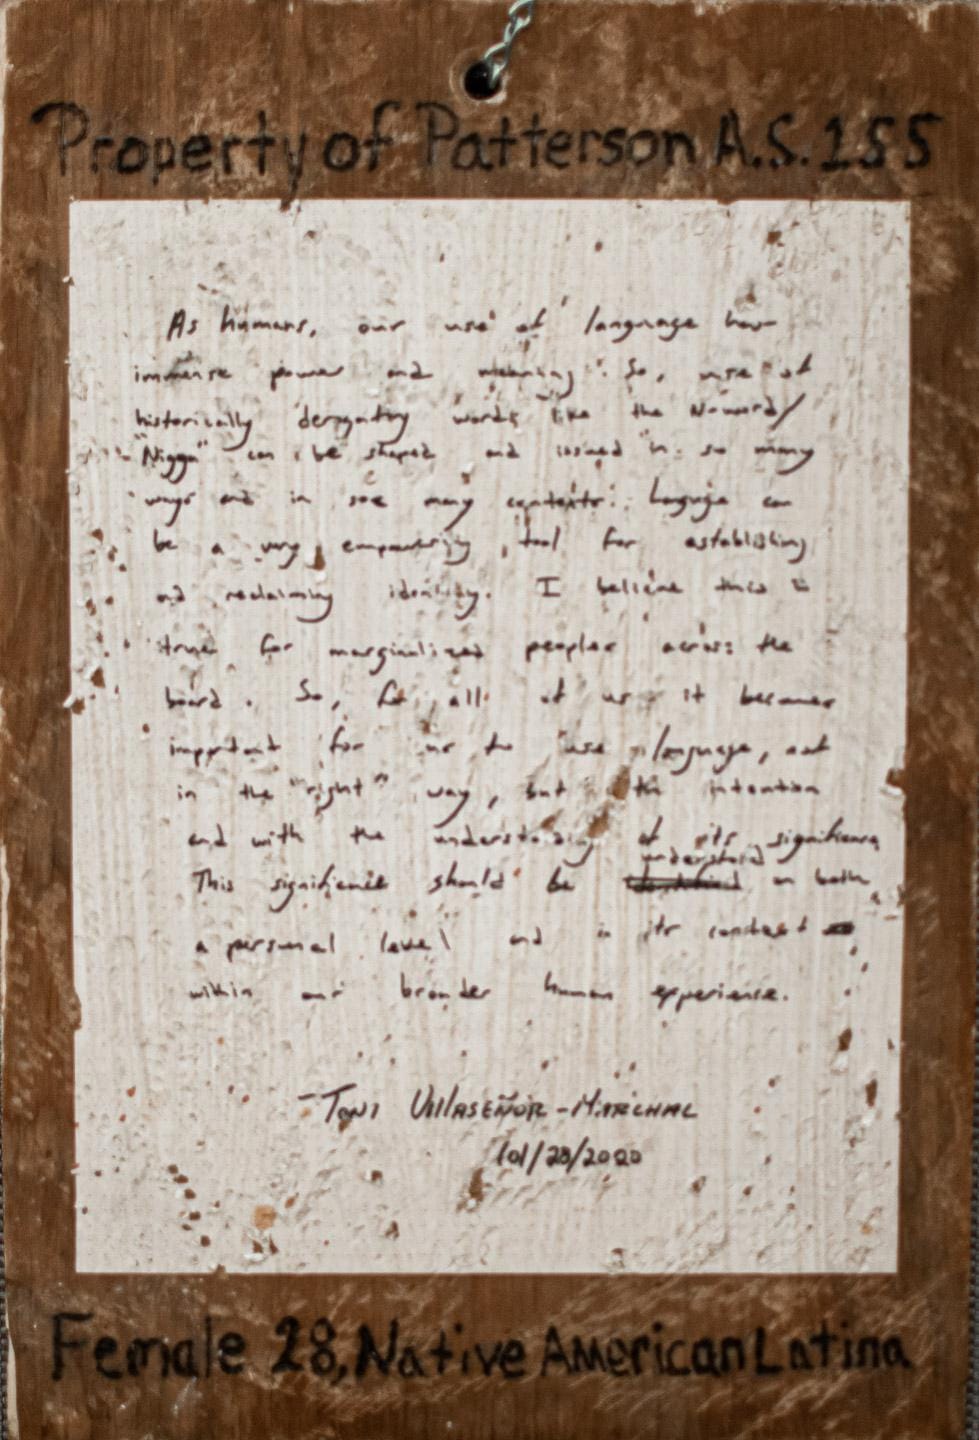 Property of Patterson A.S.155
As humans, our use of language has
immense power and meaning. So, use of
historically derogatory words like the Nword/
"Nigga" can be shaped and issued in so many
ways and in soe many contexts. Languge can
be a very empowering tool for establishing
and reclaiming identity. I believe this is
true for marginalized peoples across the
board. So, for all of us it becomes
important for us to use language, not
in the "right" way, but with intention
and with the understanding of its significance
This significance should be understood on both
a personal level and in its context
within our broader human experience.
-Toni Villaseñor-Marchal
01/28/2020
Female 28, Native American Latina